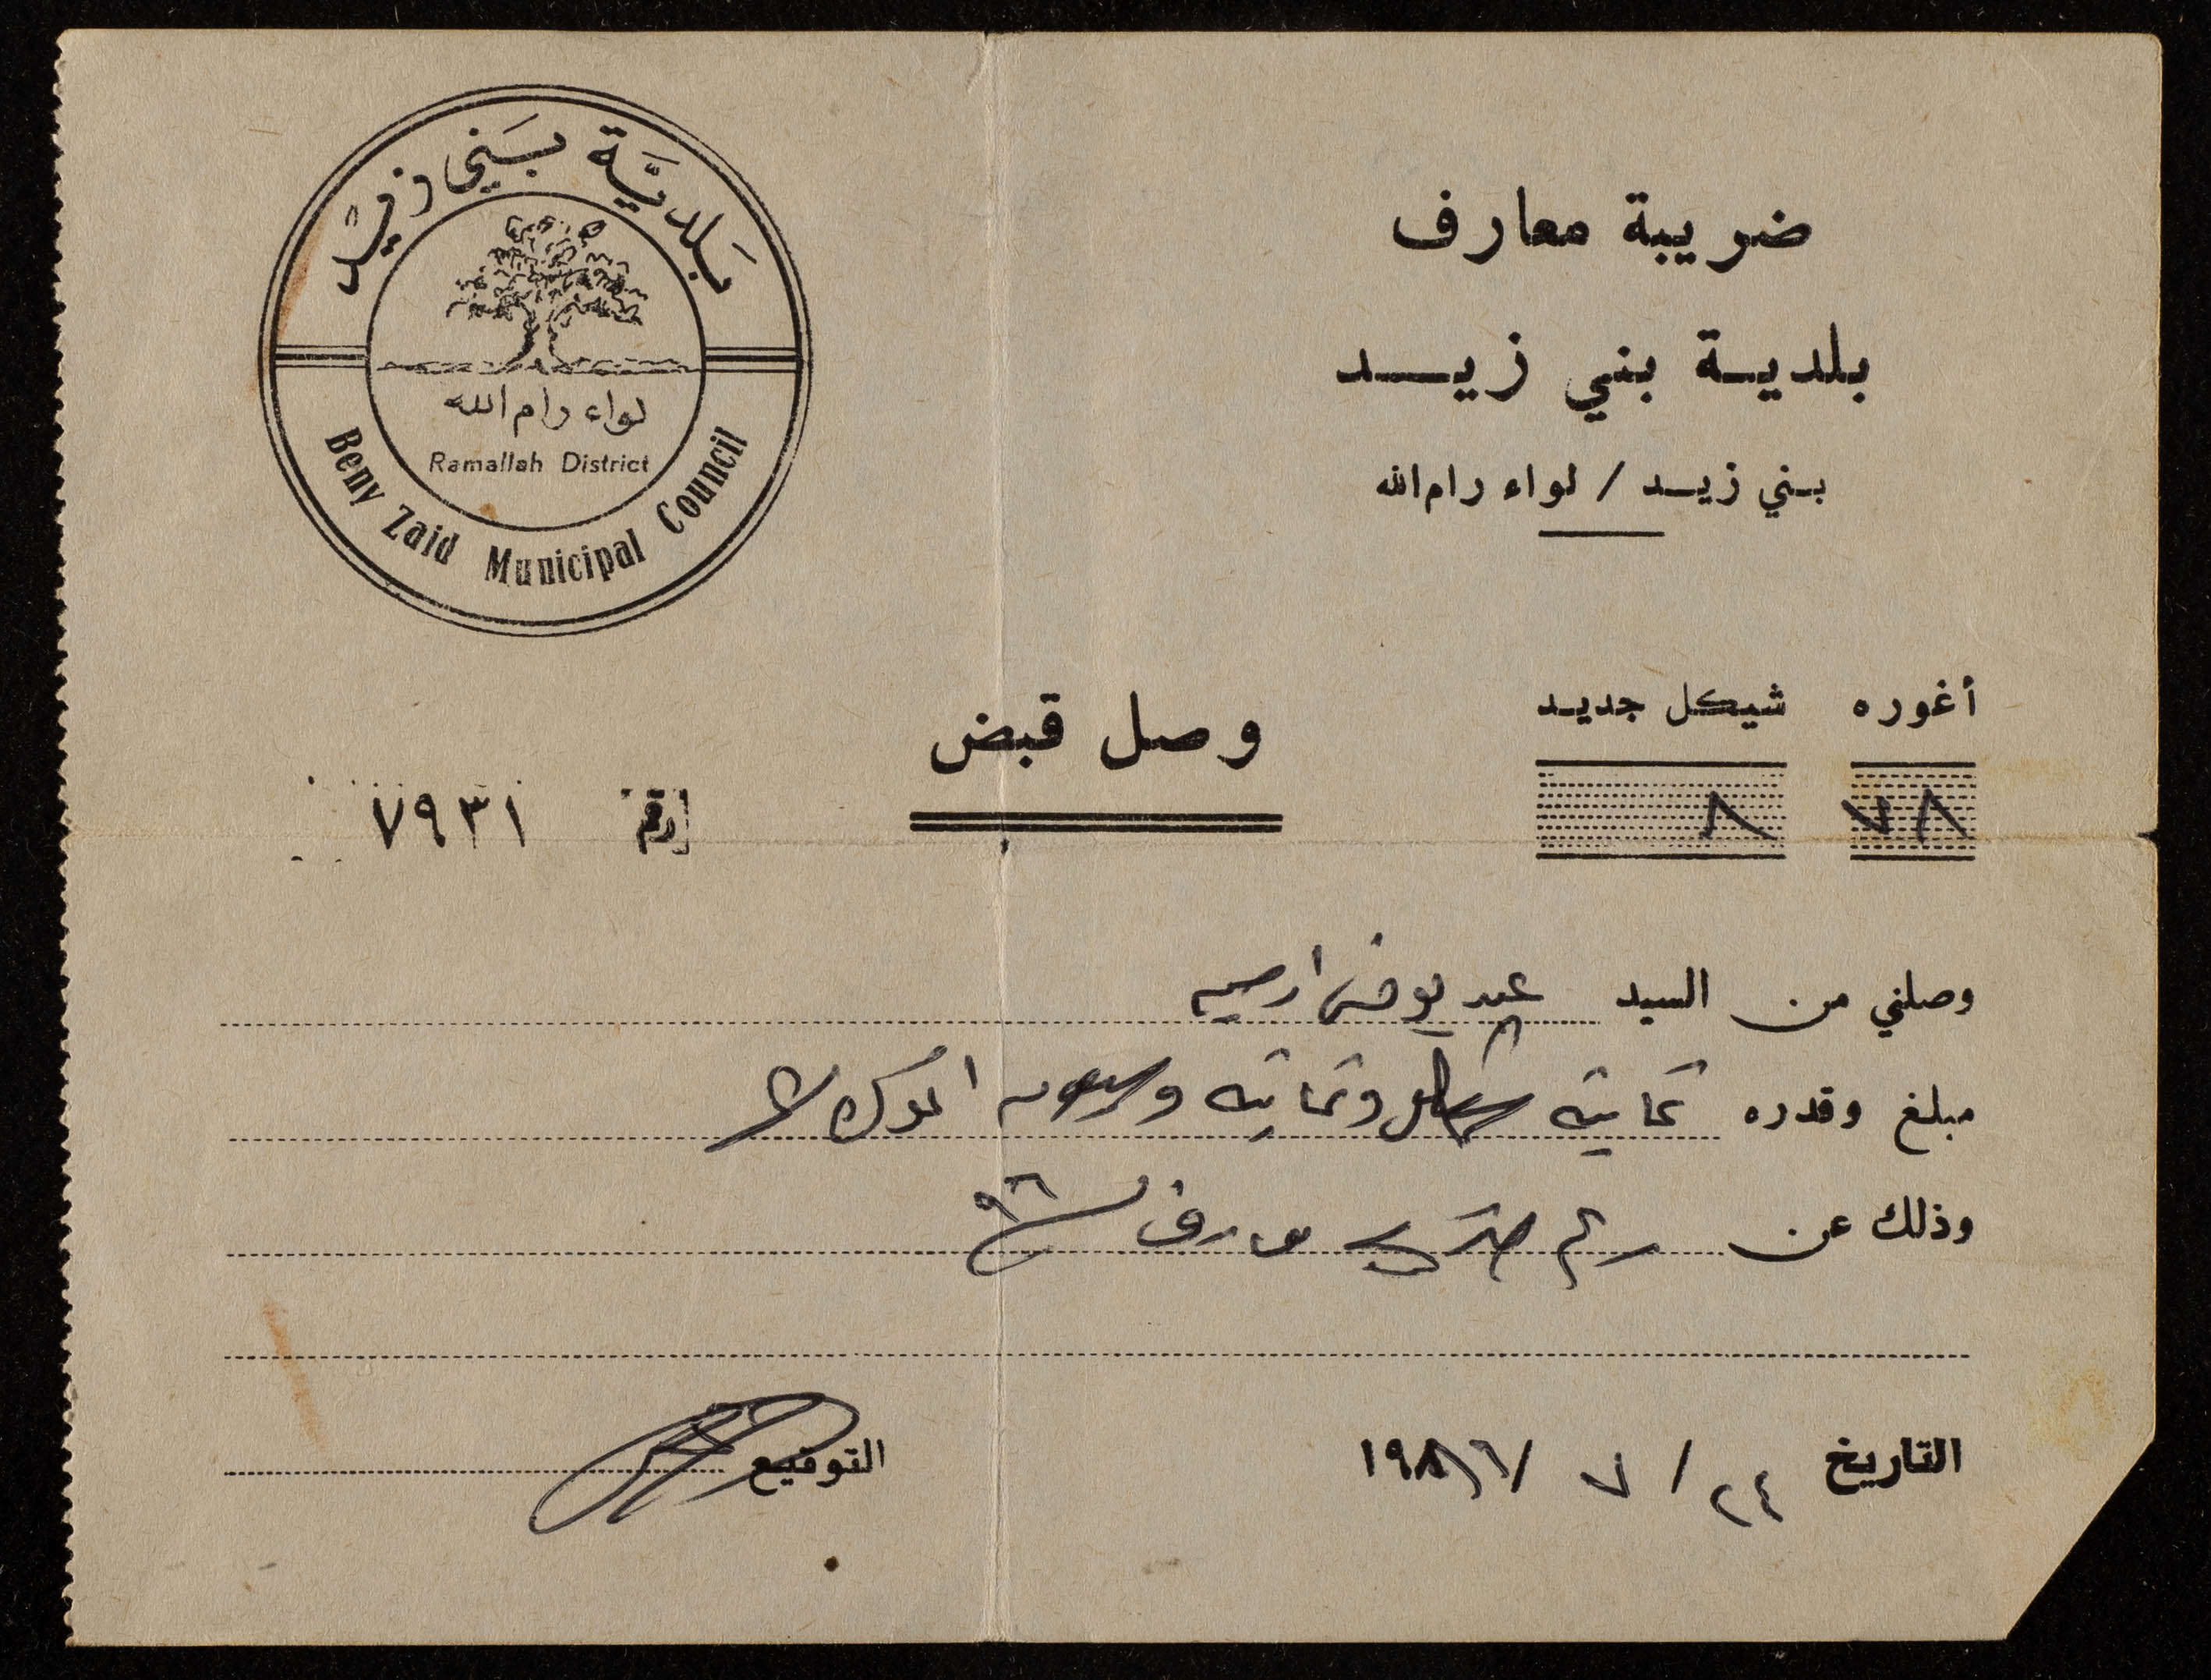 ضريبة معارف
بلدية بني زيد
بني زيد / لواء رام الله
بلدية بني زيد
لواء رام الله
Ramallah District
Beny Zaid Municipal Council
أغوره شيكل جديد
٧٨ ٨
وصل قبض
رقم ٧٩٣١
وصلني من السيد عبد
مبلغ وقدره ثمانية شيكل وثمانية وسبعون اغوره
وذلك عن معارف
التاريخ ٢٤ / ٧ / ١٩٨٦
التوقيع